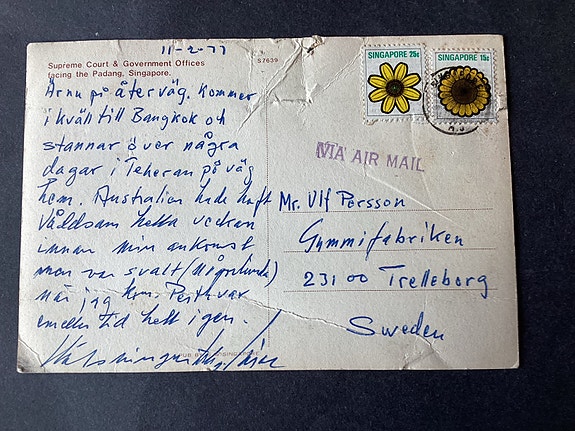 11-2-77
Supreme Court & Government Offices
facing the Padang, Singapore.
S7639
SINGAPORE 25c
SINGAPORE 15c
VIA AIR MAIL
Ännu på återväg. Kommer
i kväll till Bangkok och
stannar över några
dagar i Teheran på väg
hem. Australien hade haft
våldsam hetta veckan
innan min ankomst
men var svalt
när jag kom. Perth var
emellertid hett igen.
Mr. Ulf Persson
Gummifabriken
231 00 Trelleborg
Sweden